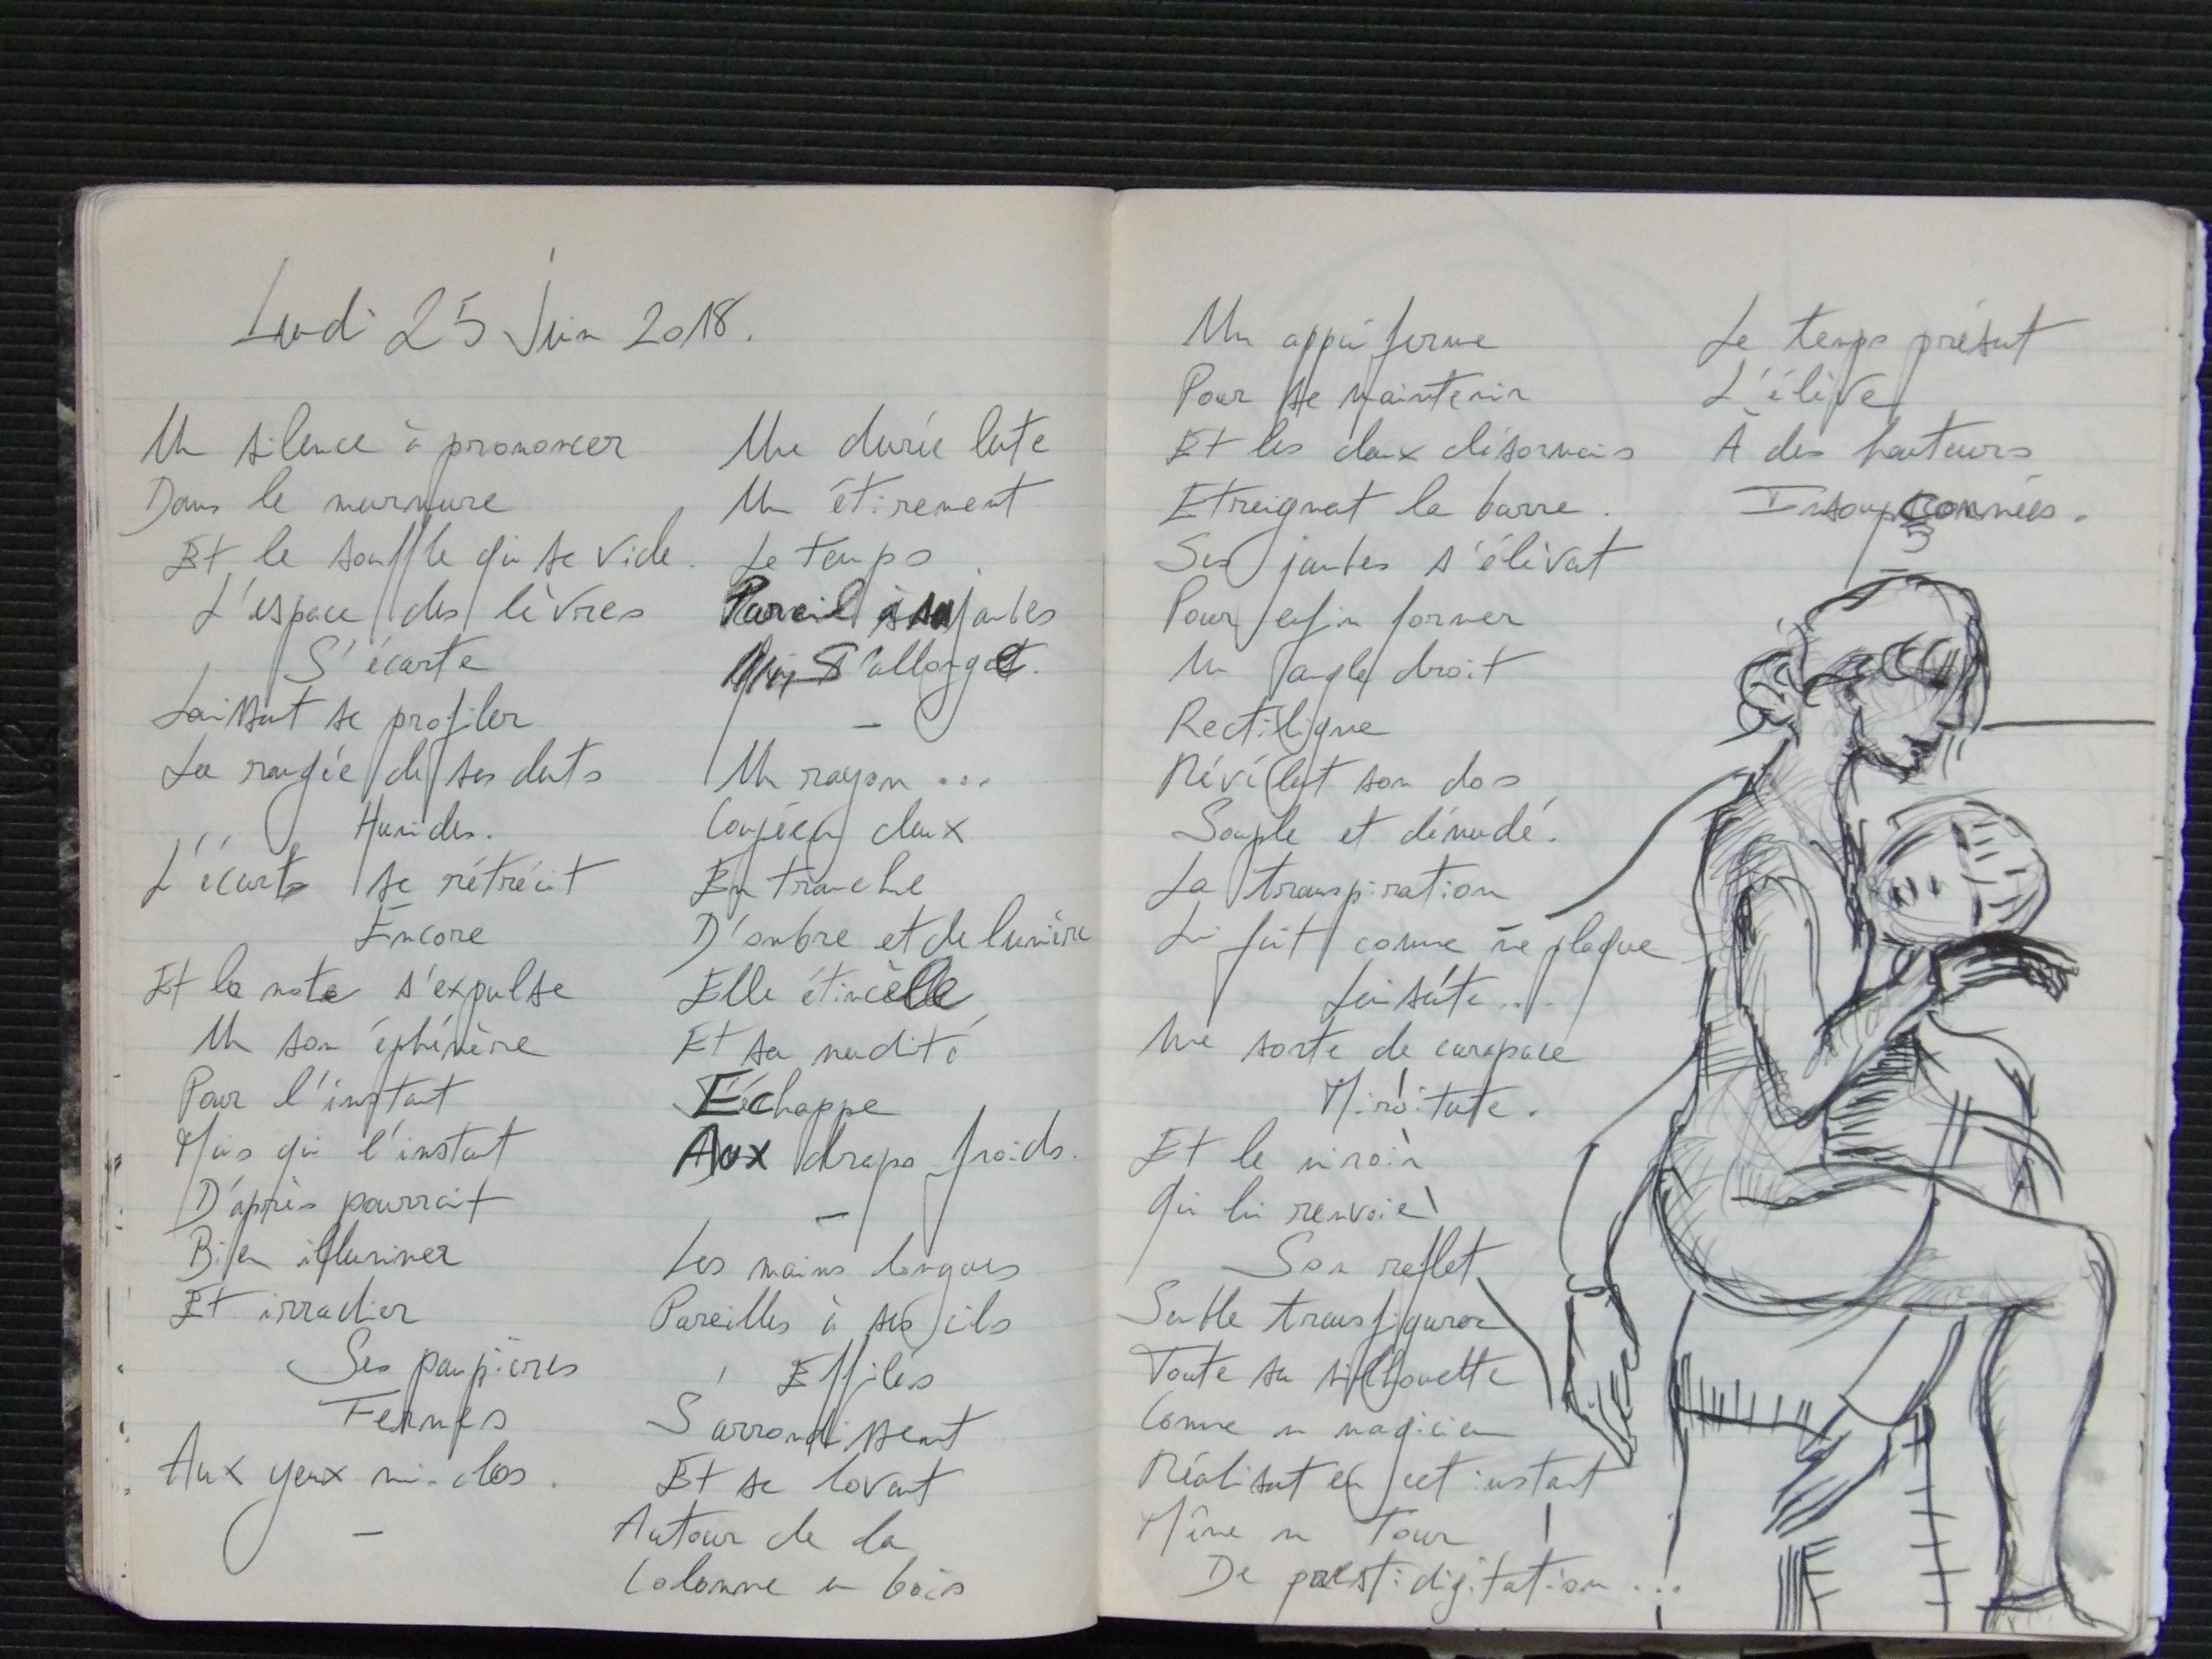 Lundi 25 Juin 2018.
Un silence à prononcer
Dans le murmure
Et le souffle qui se vide.
L'espace des lèvres
S'écarte
Laissant se profiler
La rangée de ses dents
Humides.
L'écart se rétrécit
Encore
Et la note s'expulse
Un son éphémère
Pour l'instant
Mais qui l'instant
D'après pourrait
Bien illuminer
Et irradier
Ses paupières
Fermés
Aux yeux mi-clos.
–
Une durée lente
Un étirement
Le temps
Pareil à ses jambes
S'allongeant.
–
Un rayon ...
Coupé en deux
En tranche
D'ombre et de lumière
Elle étincelle
Et sa nudité
Échappe
Aux draps froids.
–
Les mains longues
Pareilles à ses cils
Effilés
S'arrondissent
Et se lovant
Autour de la
Colonne en bois
Un appui ferme
Pour se maintenir
Et les deux désormais
Etreignent la barre.
Ses jambes s'élèvent
Pour enfin former
Un angle droit
Rectiligne
Révélant son dos
Souple et dénudé.
La transpiration
Lui fait comme une plaque
Luisante....
Une sorte de carapace
Miroitante.
Et le miroir
Qui lui renvoie
Son reflet
Semble transfigurer
Toute sa silhouette
Comme un magicien
Réalisant en cet instant
Même un tour
De prestidigitation ...
Le temps présent
L'élève
À des hauteurs
Insoupçonnées.